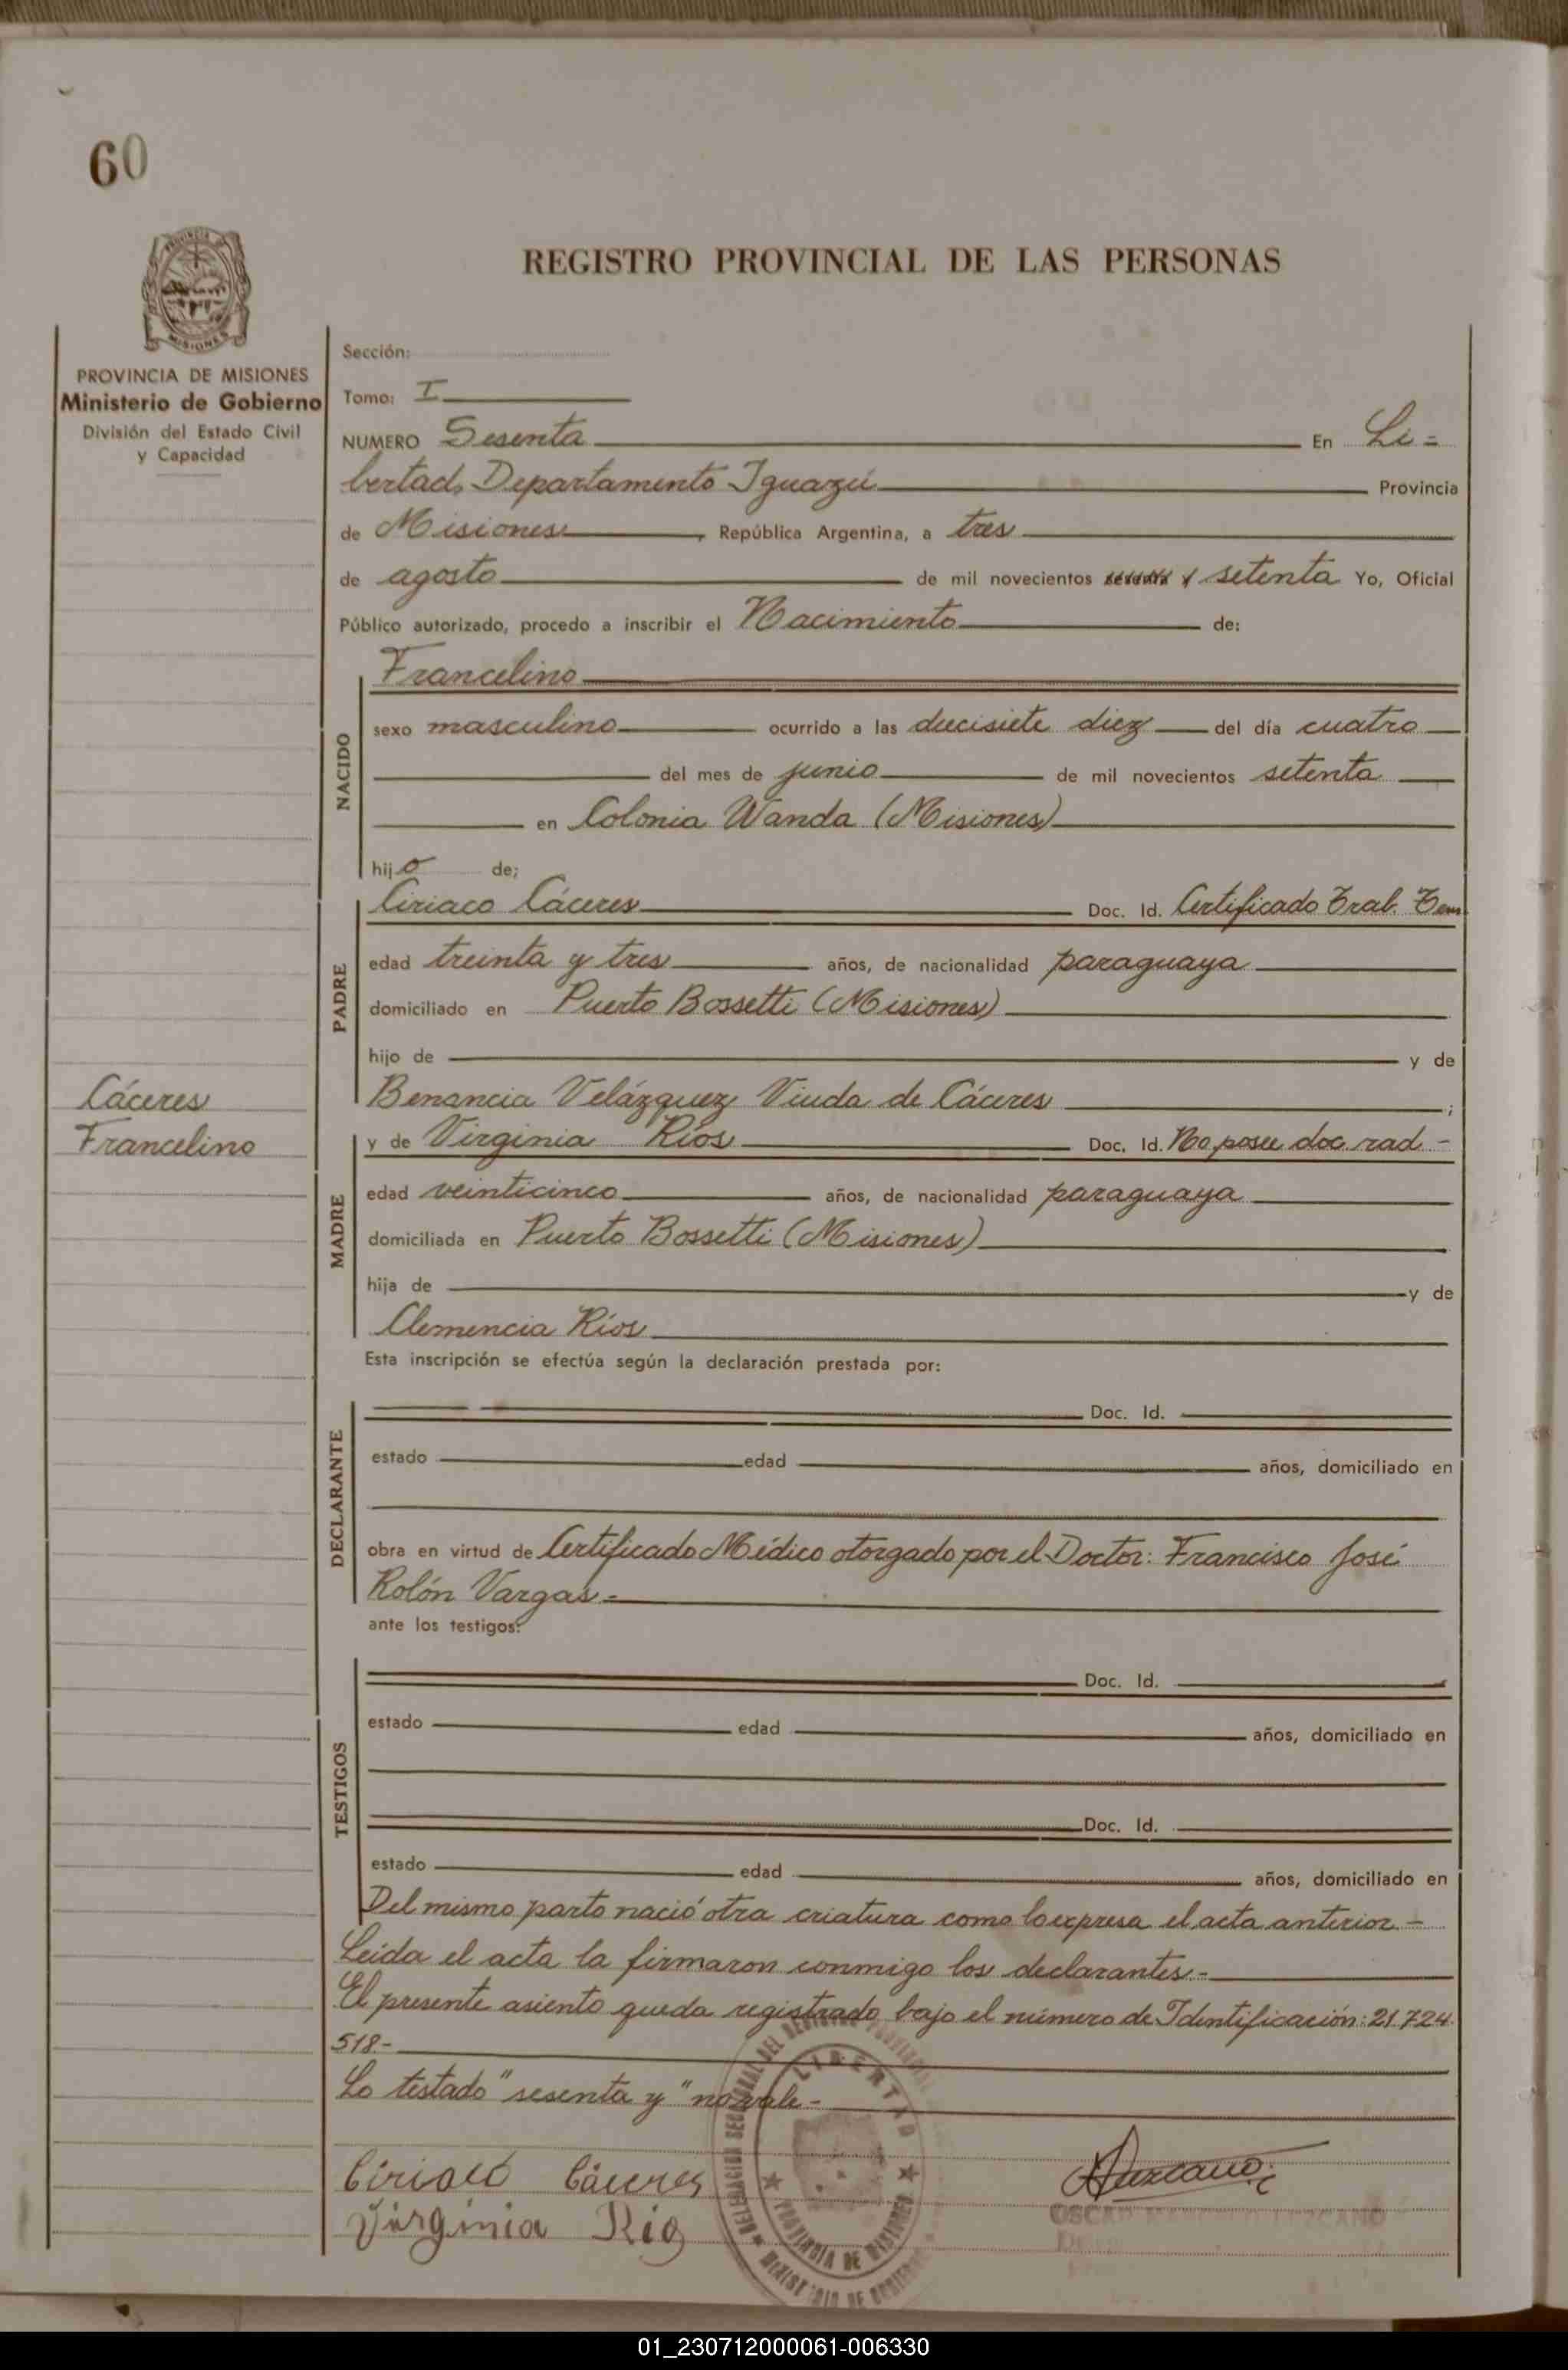 60
REGISTRO PROVINCIAL DE LAS PERSONAS
PROVINCIA DE MISIONES
Ministerio de Gobierno
División del Estado Civil
y Capacidad
Sección:
Tomo: I
NUMERO Sesenta En Li=
bertad, Departamento Iguazú Provincia
de Misiones, República Argentina, a tres
de agosto de mil novecientos sesenta y setenta Yo, Oficial
Público autorizado, procedo a inscribir el Nacimiento de:
NACIDO
Francelino
sexo masculino ocurrido a las diecisiete diez del día cuatro
del mes de junio de mil novecientos setenta
en Colonia Wanda (Misiones)
hijo de;
PADRE
Ciriaco Cáceres Doc. Id. Certificado Trab. Tem.
edad treinta y tres años, de nacionalidad paraguaya
domiciliado en Puerto Bossetti (Misiones)
hijo de y de
Benancia Velázquez Viuda de Cáceres ;
Cáceres
Francelino
MADRE
y de Virginia Ríos Doc. Id. No posee doc. rad.-
edad veinticinco años, de nacionalidad paraguaya
domiciliada en Puerto Bossetti (Misiones)
hija de y de
Clemencia Ríos
Esta inscripción se efectúa según la declaración prestada por:
DECLARANTE
Doc. Id.
estado edad años, domiciliado en
obra en virtud de Certificado Médico otorgado por el Doctor: Francisco José
Rolón Vargas.-
ante los testigos:
TESTIGOS
Doc. Id.
estado edad años, domiciliado en
Doc. Id.
estado edad años, domiciliado en
Del mismo parto nació otra criatura como lo expresa el acta anterior.-
Leída el acta la firmaron conmigo los declarantes.-
El presente asiento queda registrado bajo el número de Identificación: 21.724.
518-
Lo testado "sesenta y" no vale.-
Ciriaco Cáceres
Virginia Rios
LIBERTAD
PROVINCIA DE MISIONES
OSCAR MARCELO LEZCANO
01_230712000061-006330